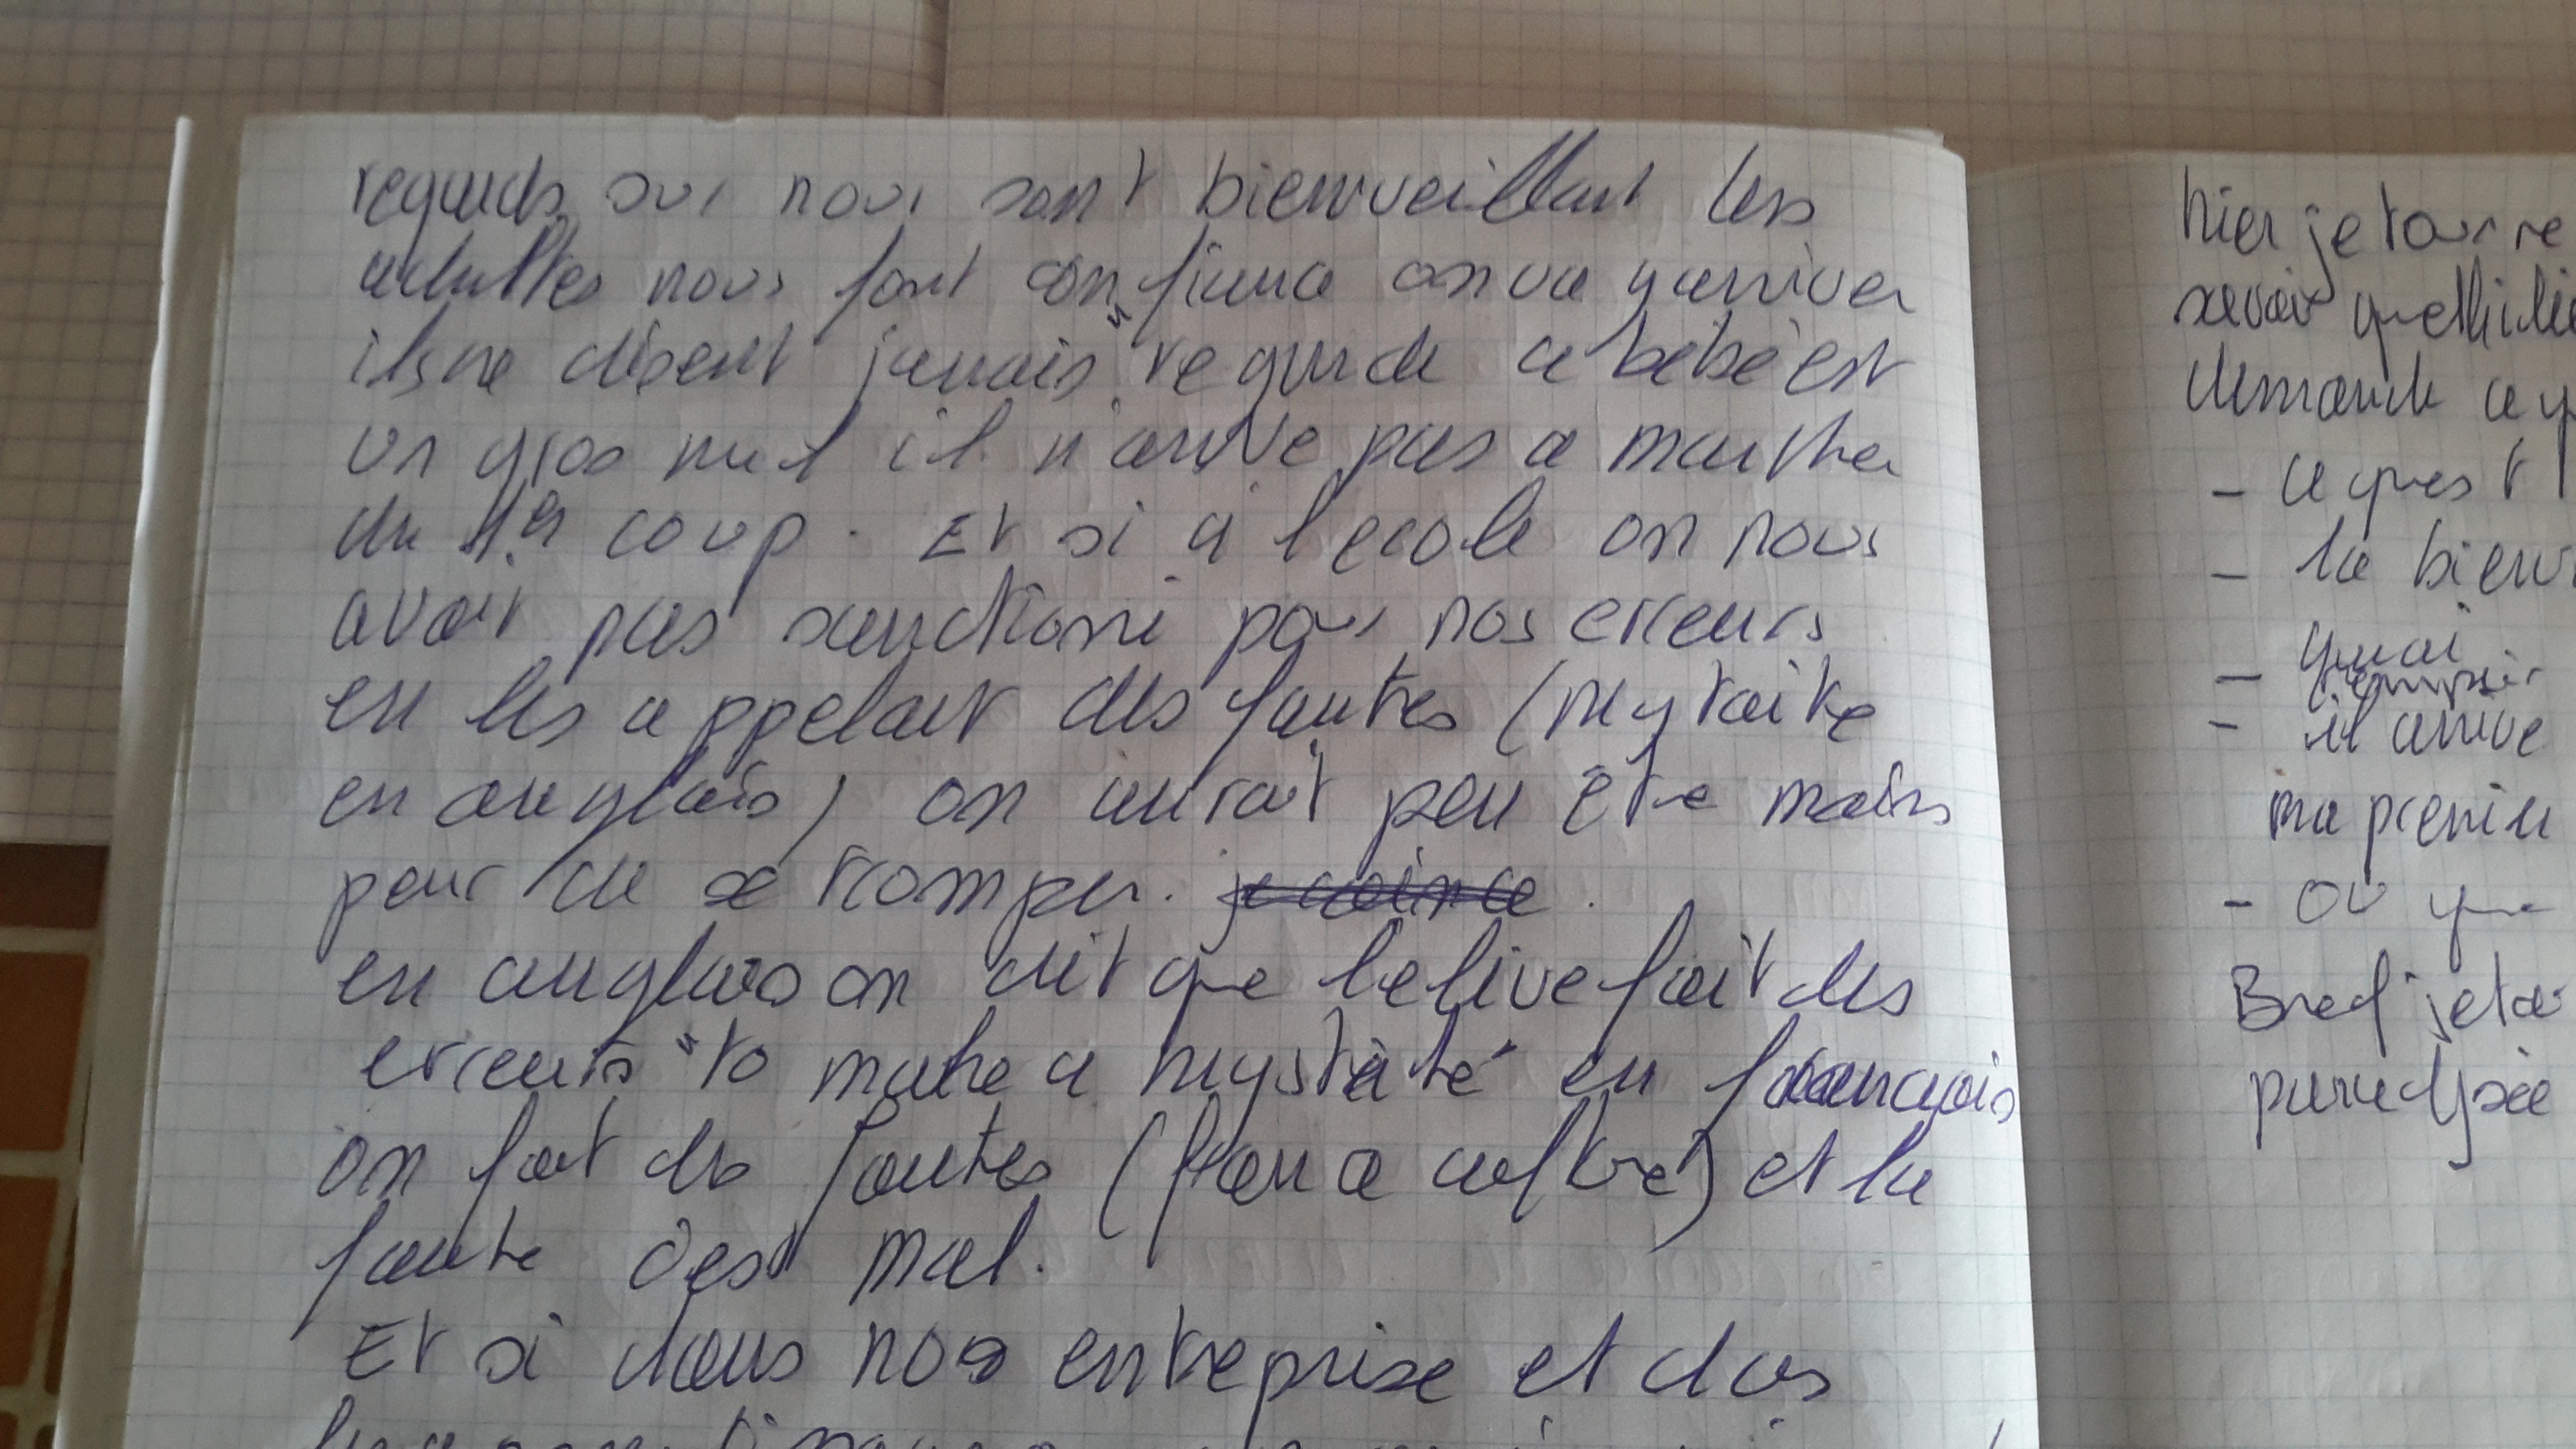 regards sur nous sont bienveillant les
adultes nous font confiance on va y arriver
ils ne disent jamais "regarde ce bébé est
un gros nul il n'arrive pas a marcher
du 1er coup. Et si a l'ecole on nous
avait pas sanctionné pour nos erreurs
en les appelant des fautes (mystaike
en anglais) on aurait peu être moins
peur de se tromper.
en anglais on dit que l'elive fait des
erreurs "to make a mystake" en francais
on fait des fautes ( culture) et la
faute c'est mal.
Et si dans nos entreprise et dans
hier je
savoir
demande ce
- ce qu'est
- la bienv
- quoi
- il arrive
ma premiè
- ou que
Bref
paralysée